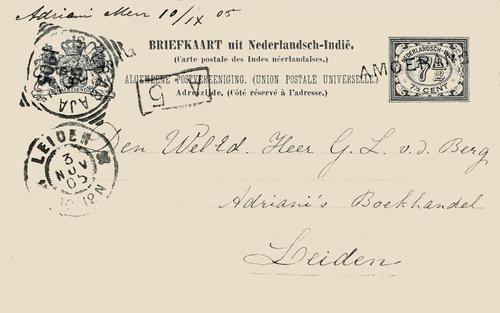 Adriani Men 10/IX 05
BRIEFKAART uit Nederlandsch-Indië.
(Carte postale des Indes néerlandaises.)
ALGEMEENE POSTVEREENIGING. (UNION POSTALE UNIVERSELLE.)
Adreszijde. (Côté réservé à l'adresse.)
NEDERLANDSCH-INDIË
7½
7½ CENT
AMOERANG
5
LEIDEN
3
NOV
05
Den WelEd. Heer G. L. v. d. Berg
Adriani's Boekhandel
Leiden